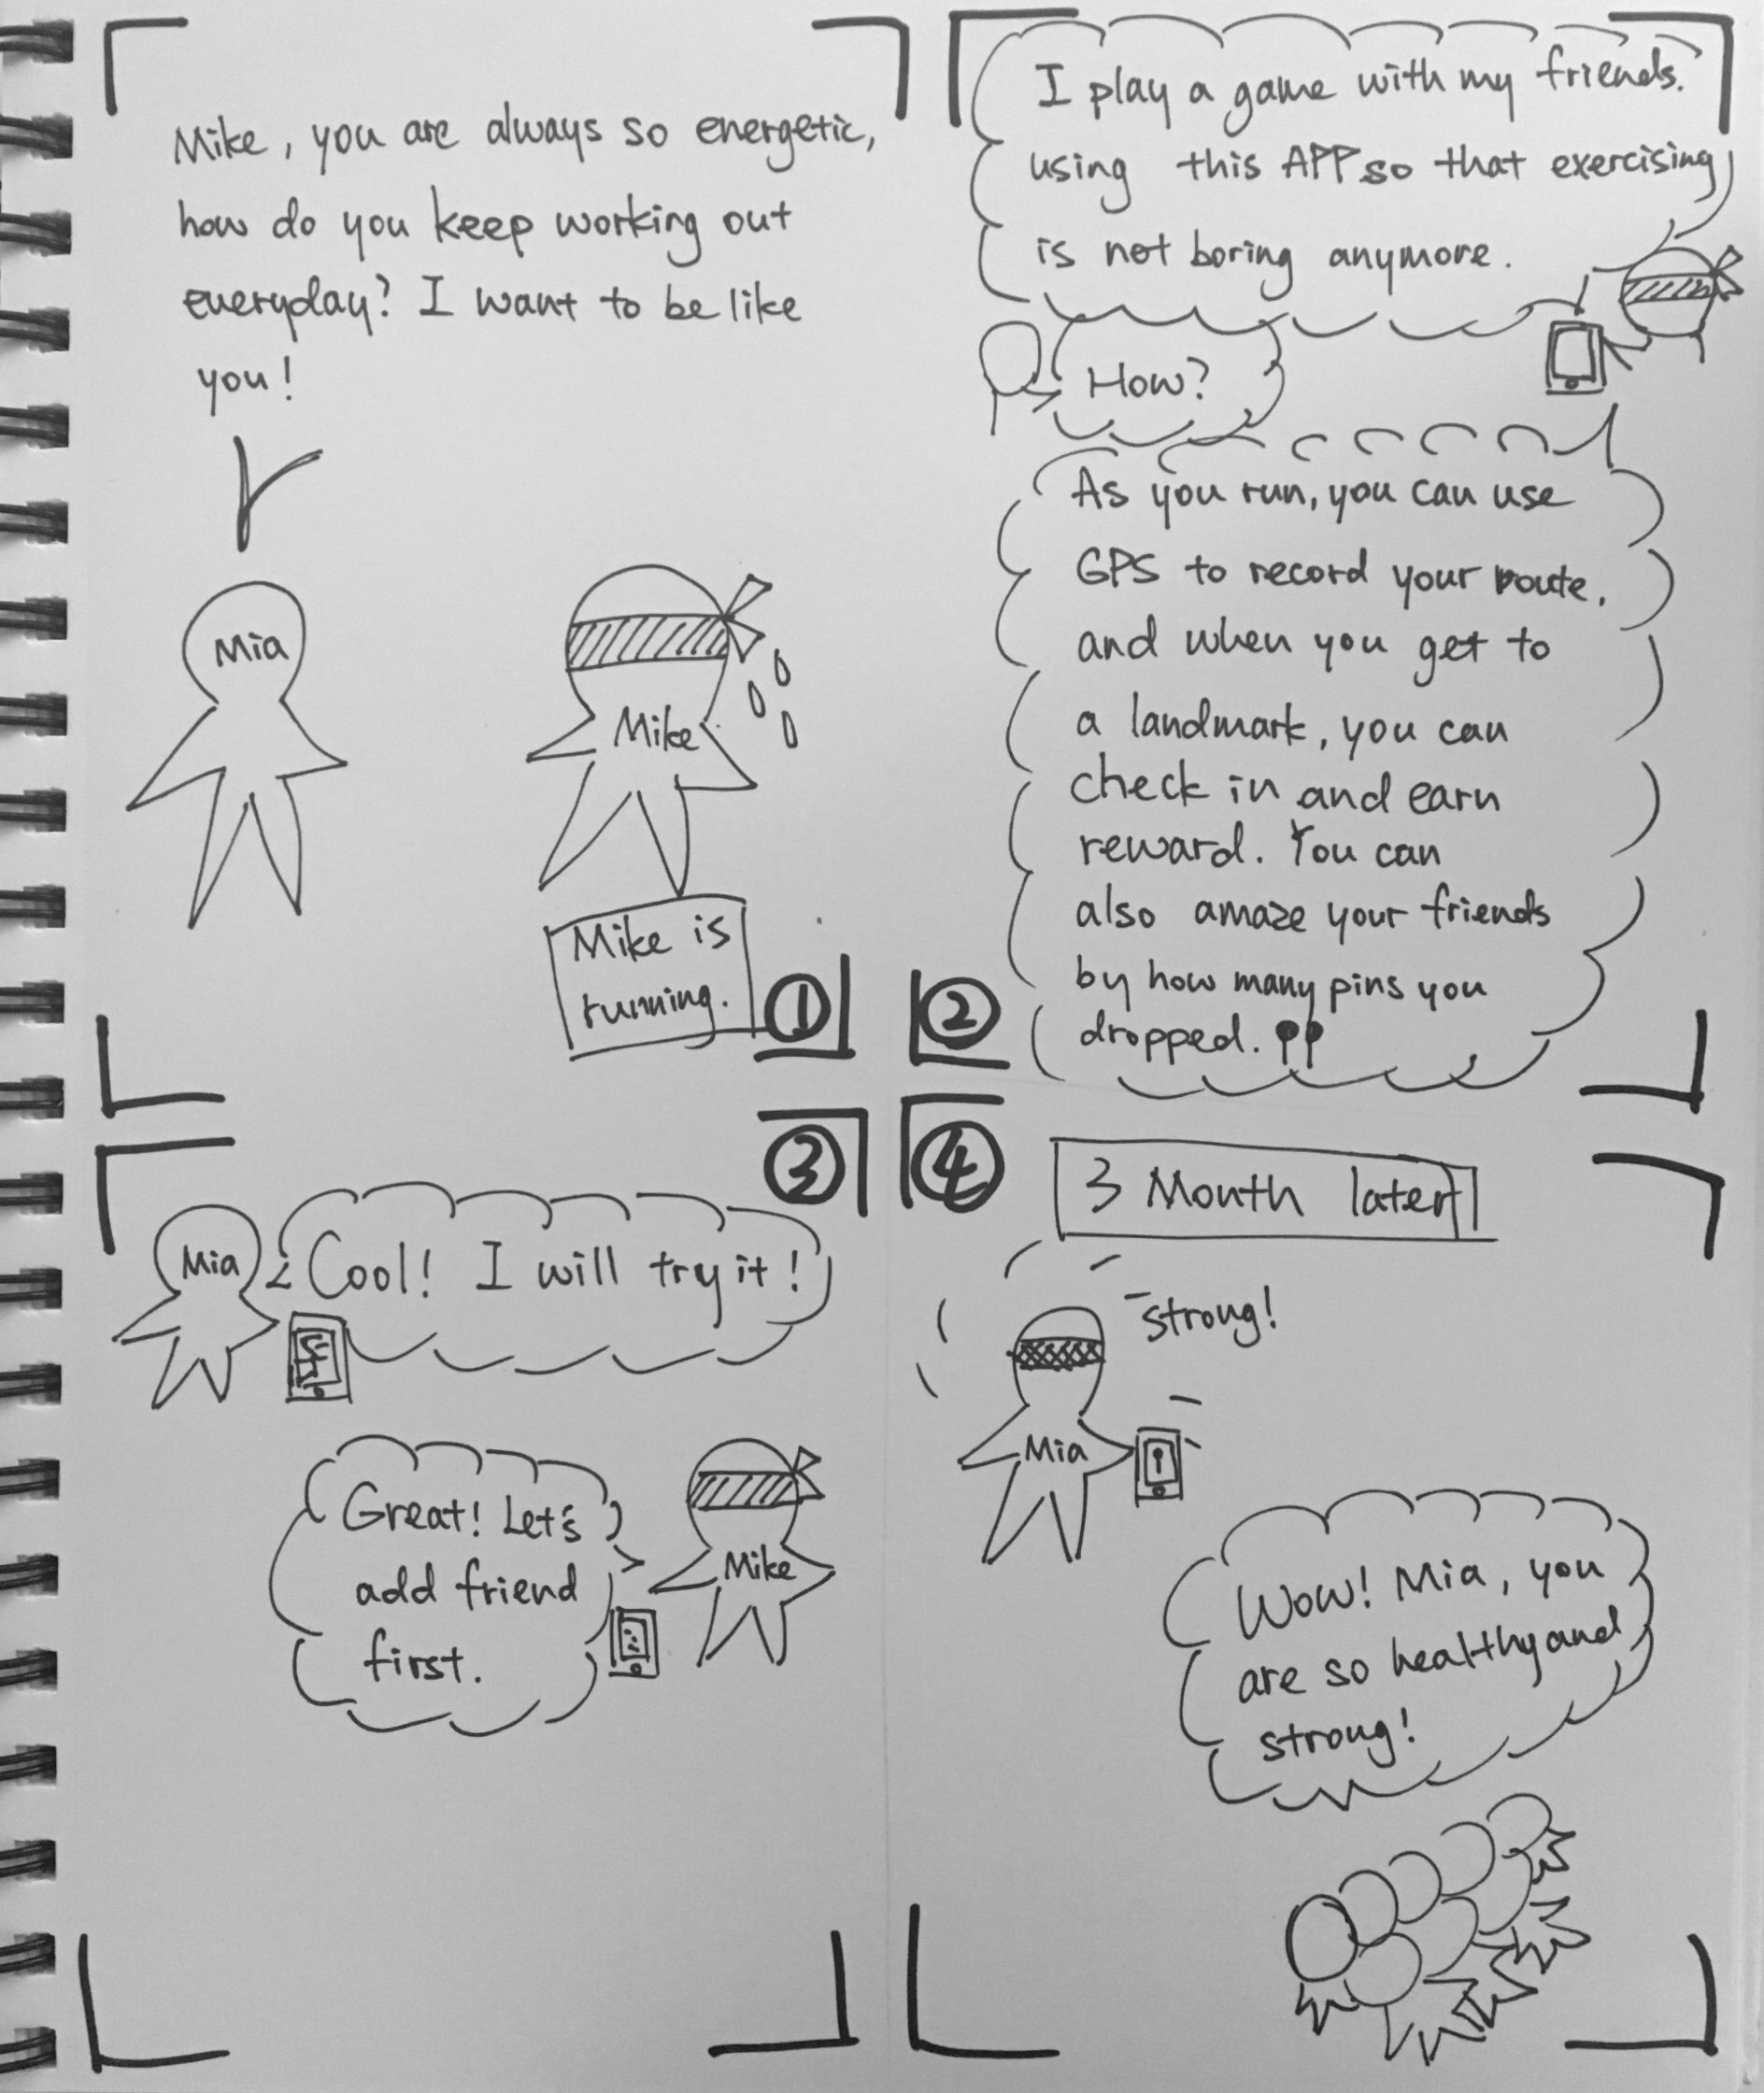 Mike, you are always so energetic,
how do you keep working out
everyday? I want to be like
you!
Mia
Mike
Mike is
running.
①
②
I play a game with my friends.
using this APP so that exercising
is not boring anymore.
How?
As you run, you can use
GPS to record your route,
and when you get to
a landmark, you can
check in and earn
reward. You can
also amaze your friends
by how many pins you
dropped.
③
Mia
Cool! I will try it!
Great! Let's
add friend
first.
Mike
④
3 Month later
strong!
Mia
Wow! Mia, you
are so healthy and
strong!